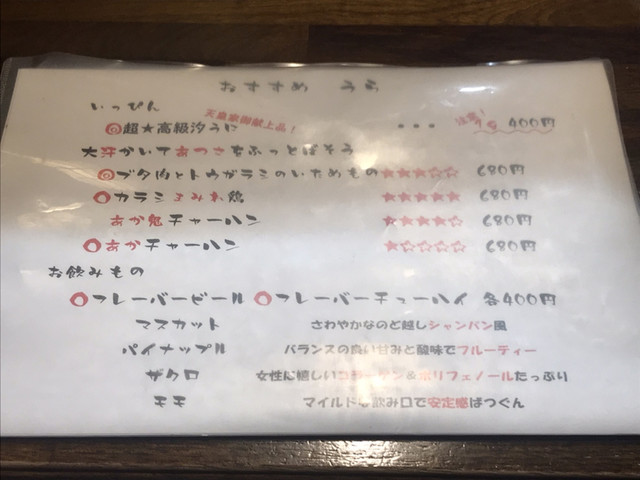 おすすめ うら
いっぴん
天皇家御献上品!
◎超★高級汐うに ・・・ 400円
大汗かいてあつさをふっとばそう
◎ブタ肉とトウガラシのいためもの★★★☆☆ 680円
○カラシ 鶏 ★★★★★ 680円
あか鬼チャーハン ★★★★☆ 680円
○あかチャーハン ★☆☆☆☆ 680円
お飲みもの
○フレーバービール ○フレーバーチューハイ 各400円
マスカット さわやかなのど越しシャンパン風
パイナップル バランスの良い甘みと酸味でフルーティー
ザクロ 女性に嬉しいコラーゲン&ポリフェノールたっぷり
モモ マイルドな飲み口で安定感ばつぐん